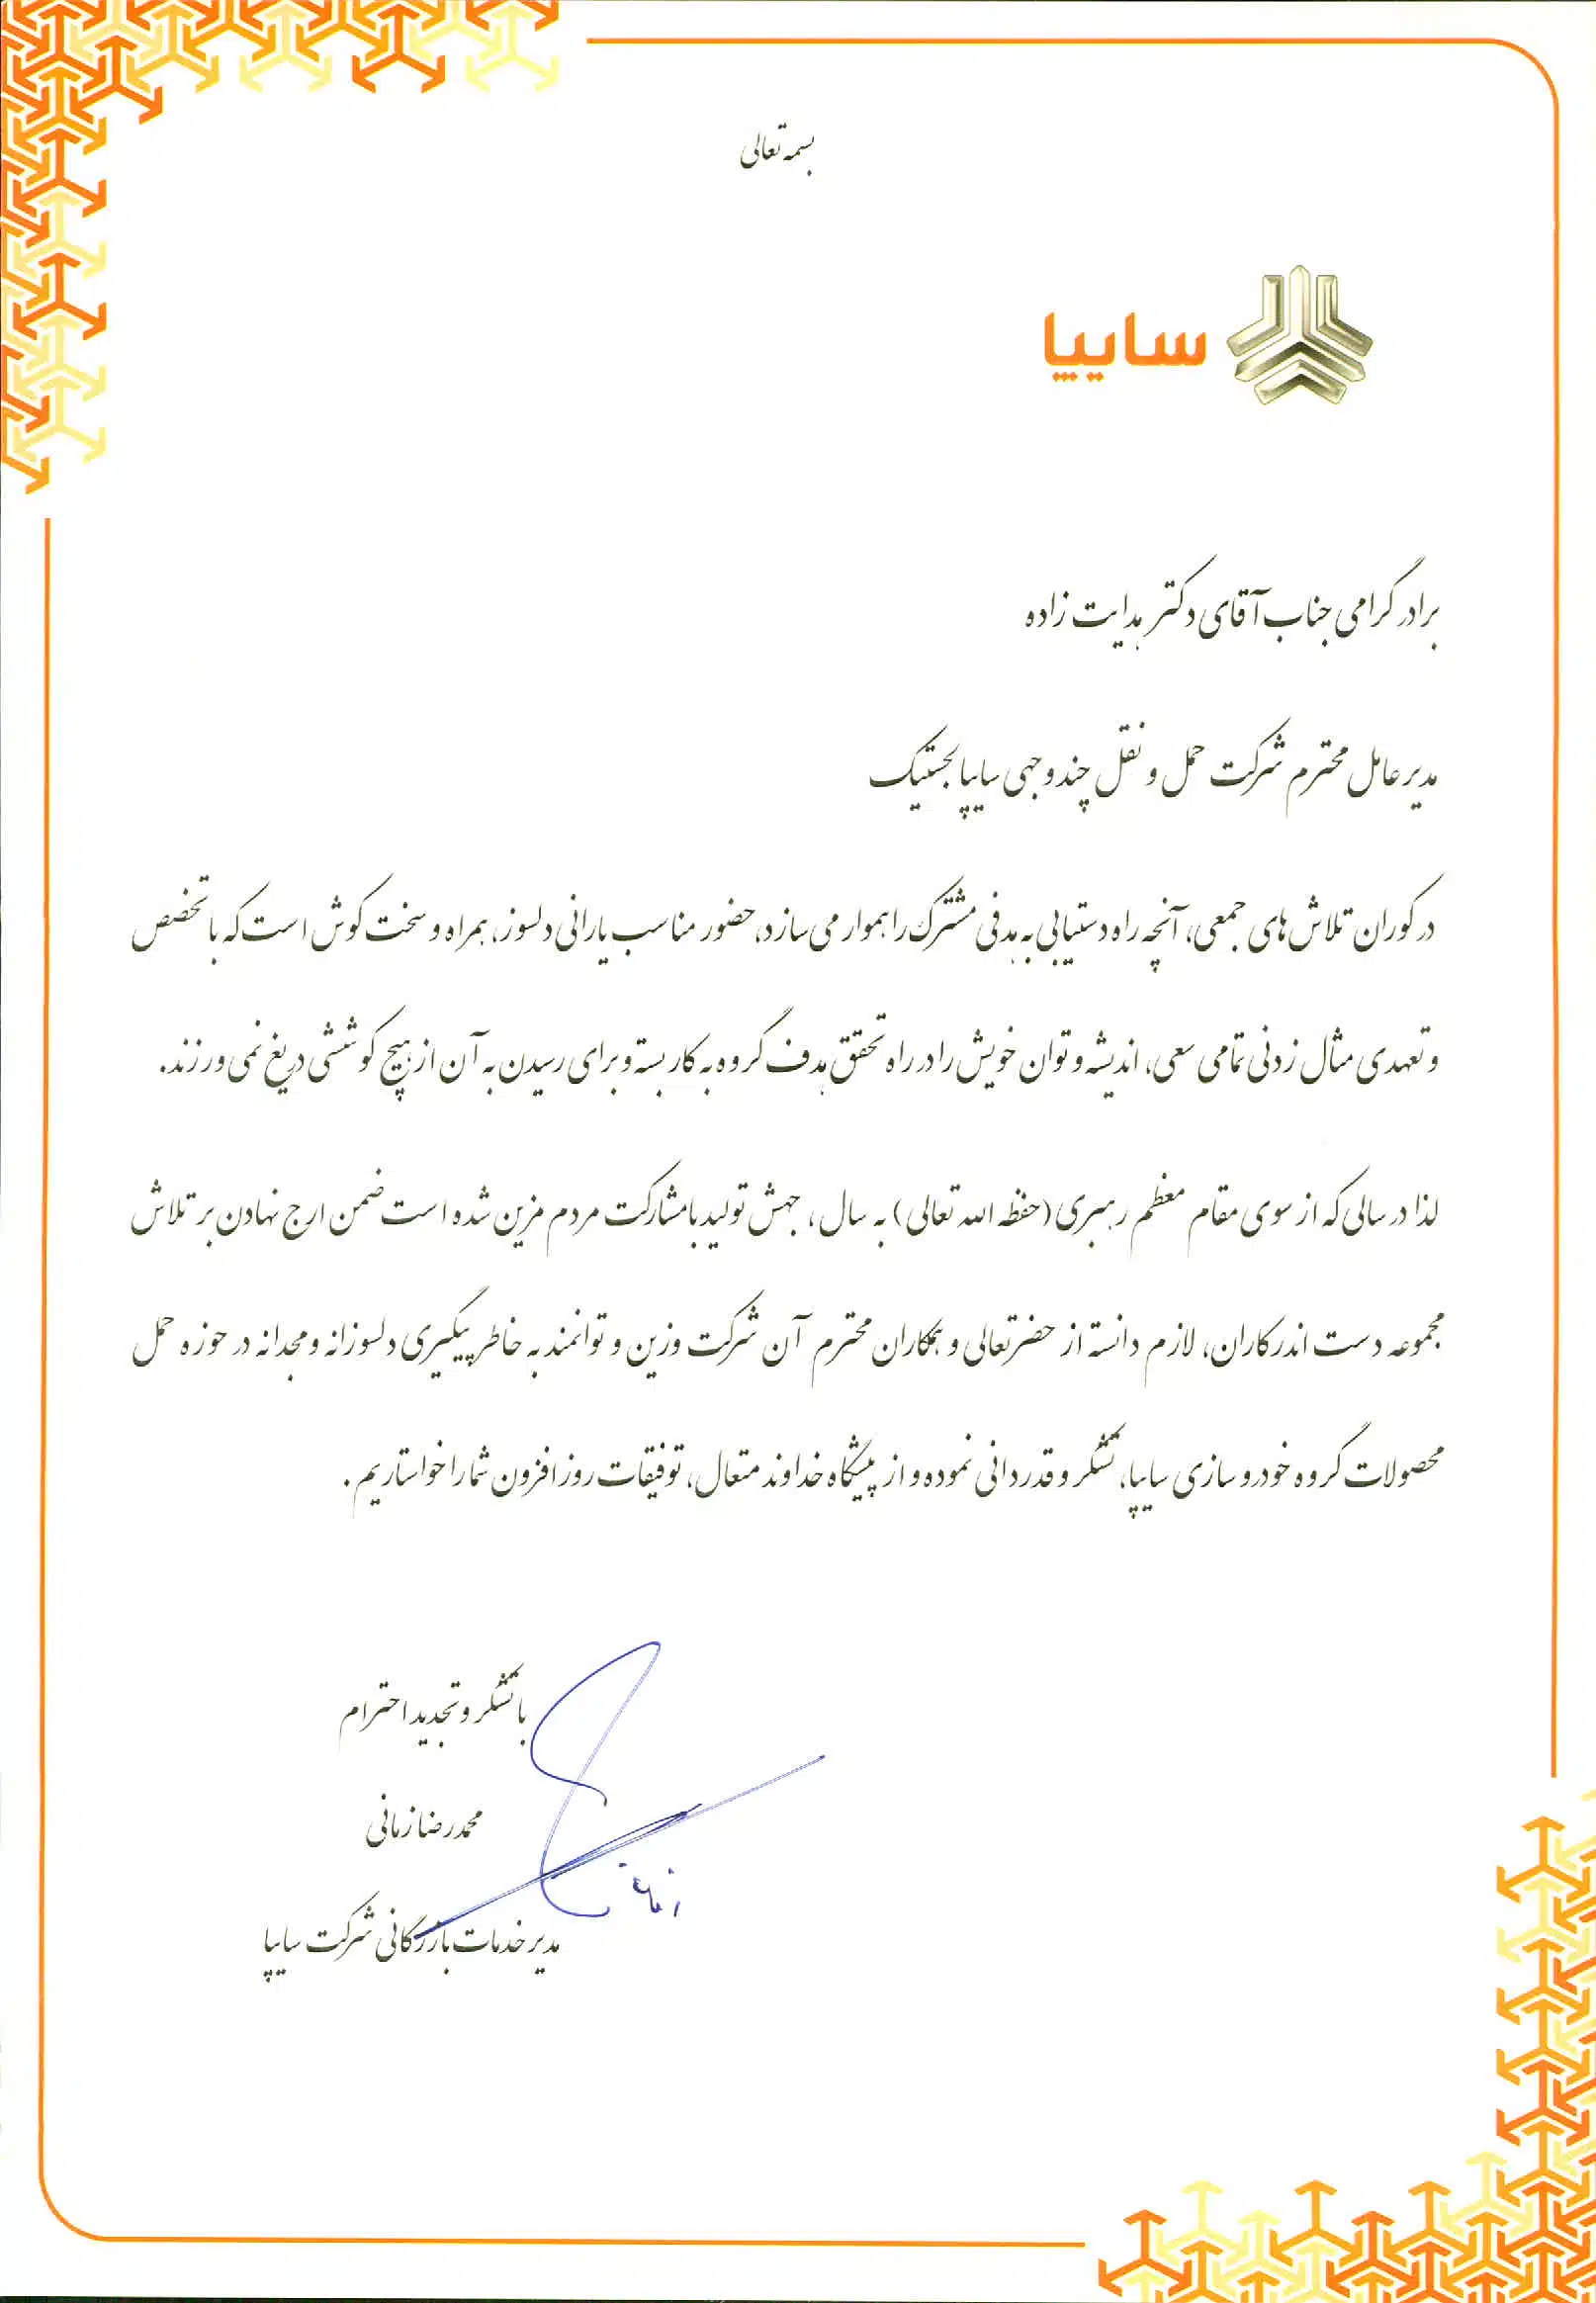 بسمه تعالی
سایپا
برادر گرامی جناب آقای دکتر هدایت زاده
مدیر عامل محترم شرکت حمل و نقل چند وجهی سایپا لجستیک
در کوران تلاش های جمعی، آنچه راه دستیابی به هدفی مشترک را هموار می سازد، حضور مناسب یارانی دلسوز، همراه و سخت کوش است که با تخصص
و تعهدی مثال زدنی تمامی سعی، اندیشه و توان خویش را در راه تحقق هدف گروه به کار بسته و برای رسیدن به آن از هیچ کوششی دریغ نمی ورزند.
لذا در سالی که از سوی مقام معظم رهبری (حفظه الله تعالی) به سال، جهش تولید با مشارکت مردم مزین شده است ضمن ارج نهادن بر تلاش
مجموعه دست اندرکاران، لازم دانسته از حضرتعالی و همکاران محترم آن شرکت وزین و توانمند به خاطر پیگیری دلسوزانه و مجدانه در حوزه حمل
محصولات گروه خودروسازی سایپا، تشکر و قدردانی نموده و از پیشگاه خداوند متعال، توفیقات روز افزون شما را خواستاریم.
با تشکر و تجدید احترام
محمدرضا زمانی
مدیر خدمات بازرگانی شرکت سایپا